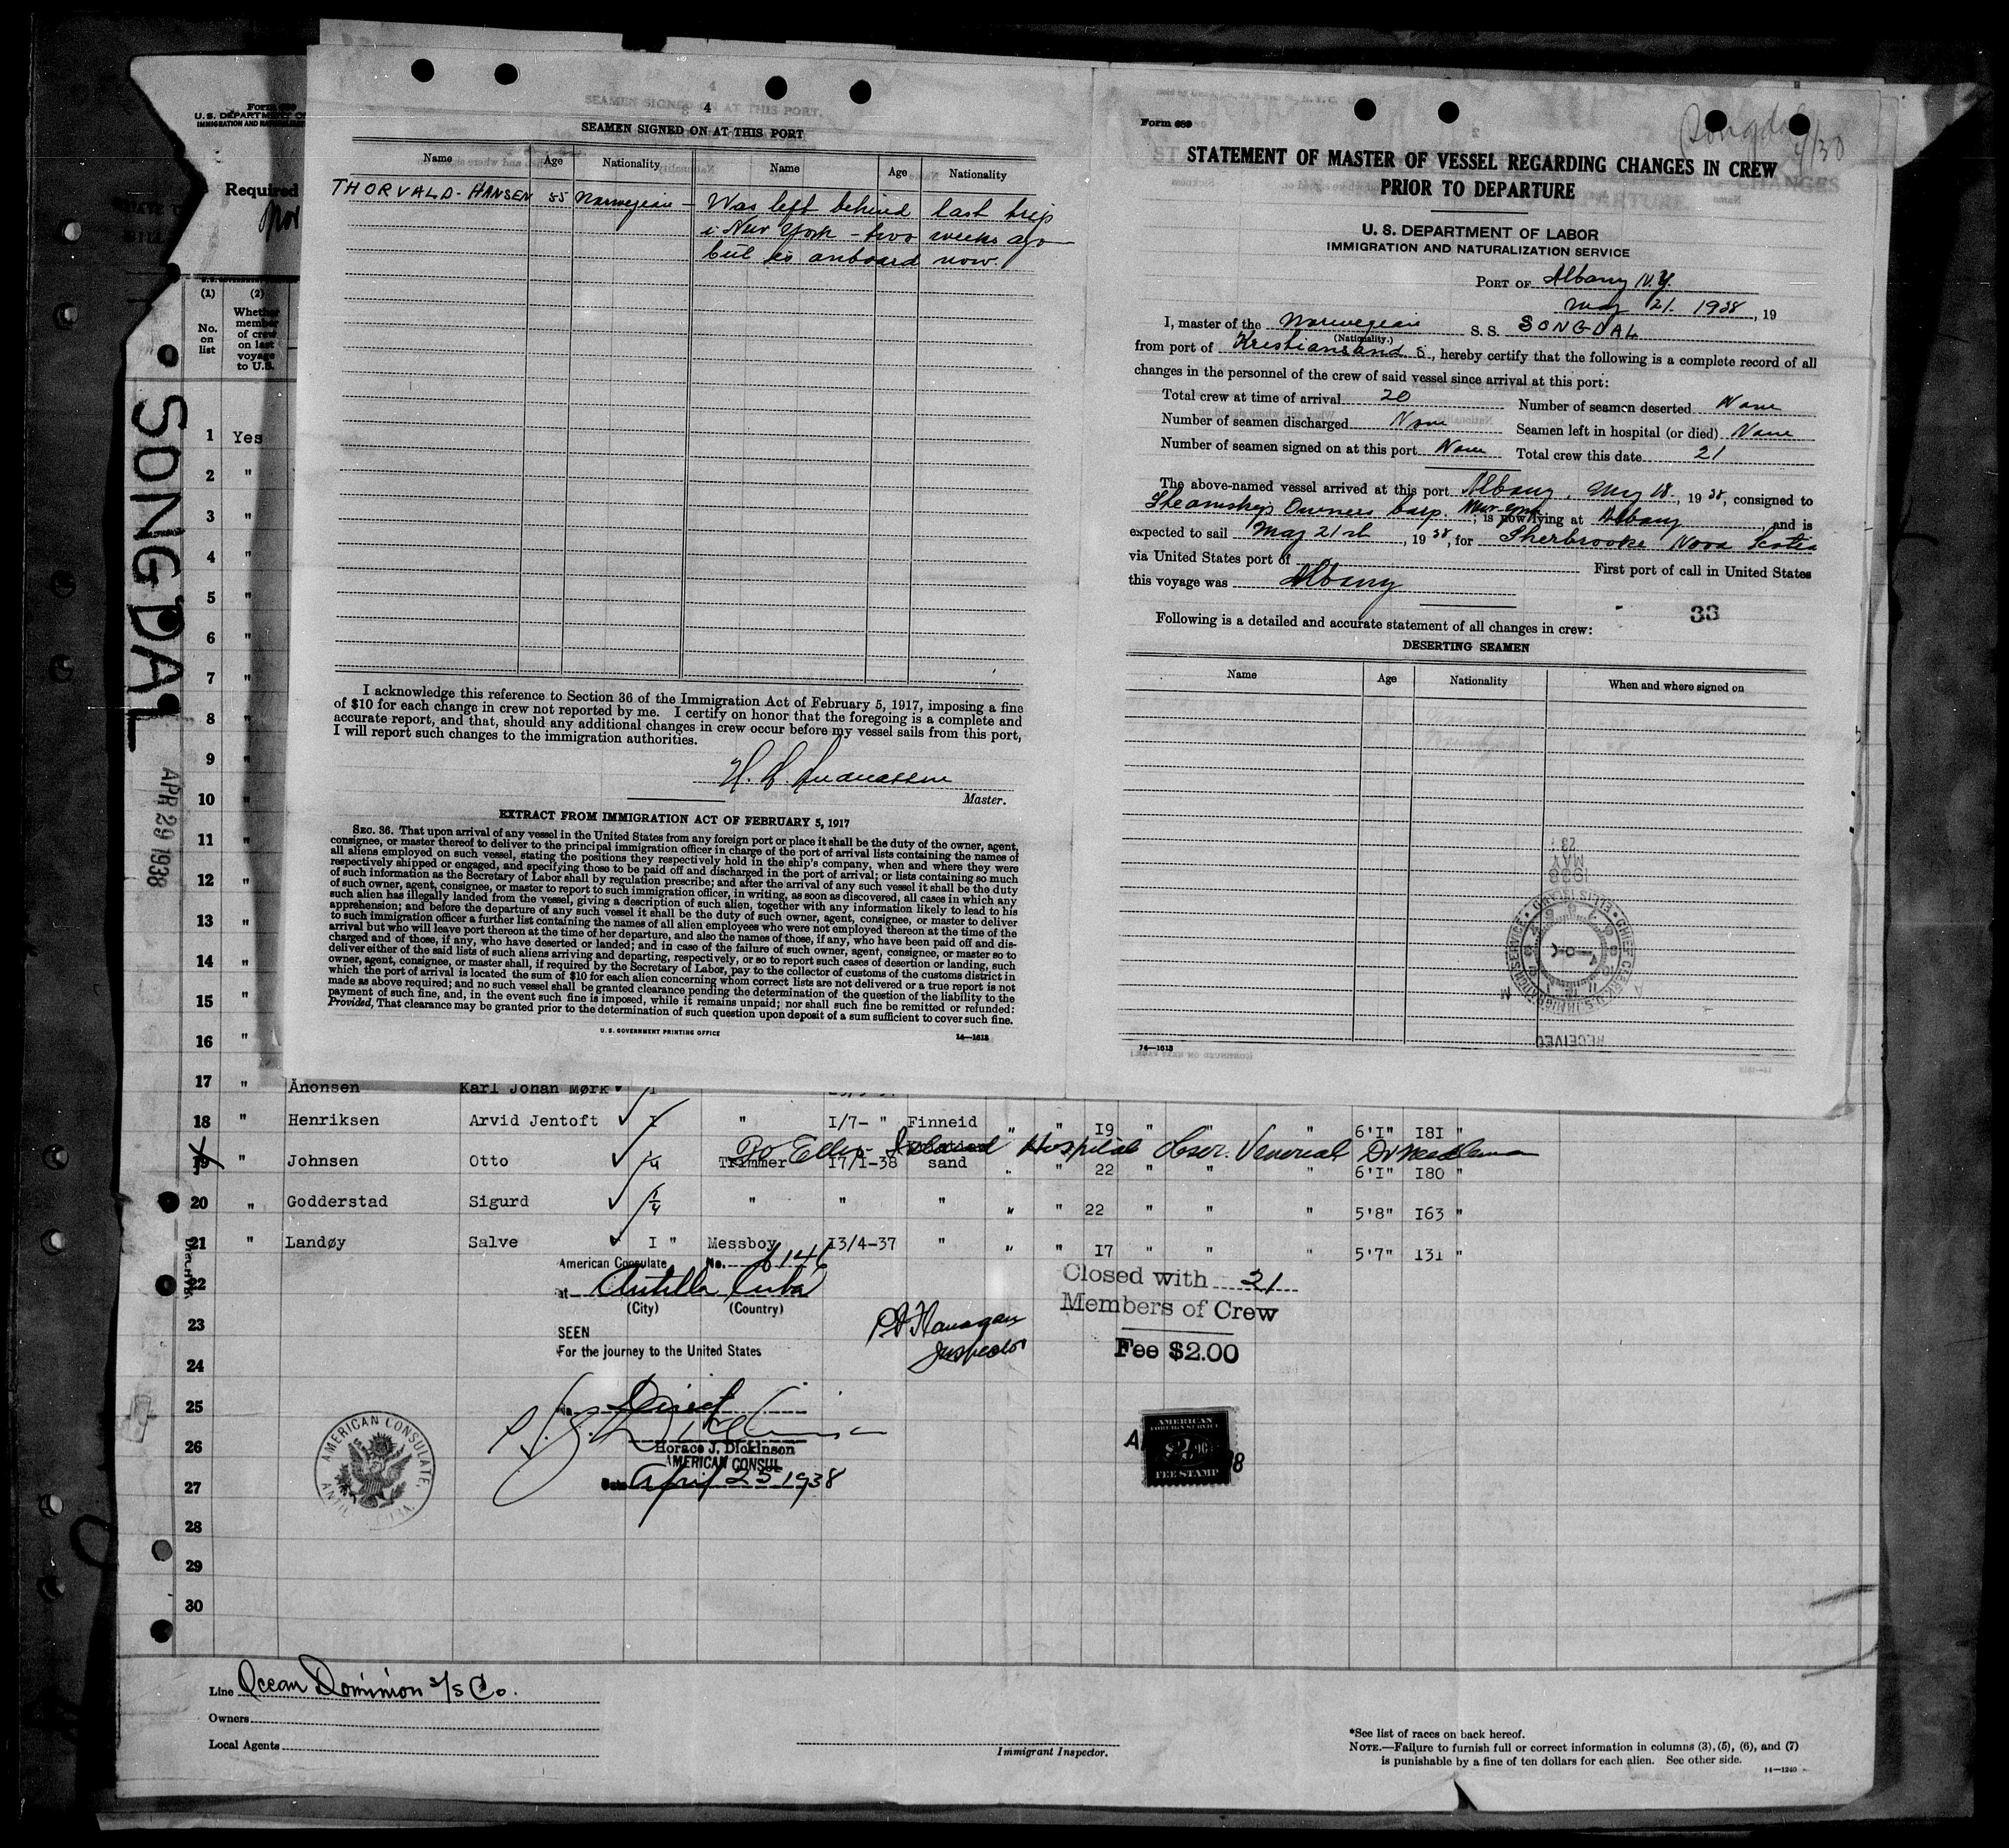 4
SEAMEN SIGNED ON AT THIS PORT
Name Age Nationality Name Age Nationality
THORVALD-HANSEN 55 Norwegian - Was left behind last trip
i New York - two weeks ago
but is onboard now.
I acknowledge this reference to Section 36 of the Immigration Act of February 5, 1917, imposing a fine
of $10 for each change in crew not reported by me. I certify on honor that the foregoing is a complete and
accurate report, and that, should any additional changes in crew occur before my vessel sails from this port,
I will report such changes to the immigration authorities.
Master.
EXTRACT FROM IMMIGRATION ACT OF FEBRUARY 5, 1917
SEC. 36. That upon arrival of any vessel in the United States from any foreign port or place it shall be the duty of the owner, agent,
consignee, or master thereof to deliver to the principal immigration officer in charge of the port of arrival lists containing the names of
all aliens employed on such vessel, stating the positions they respectively hold in the ship's company, when and where they were
respectively shipped or engaged, and specifying those to be paid off and discharged in the port of arrival; or lists containing so much
of such information as the Secretary of Labor shall by regulation prescribe; and after the arrival of any such vessel it shall be the duty
of such owner, agent, consignee, or master to report to such immigration officer, in writing, as soon as discovered, all cases in which any
such alien has illegally landed from the vessel, giving a description of such alien, together with any information likely to lead to his
apprehension; and before the departure of any such vessel it shall be the duty of such owner, agent, consignee, or master to deliver
to such immigration officer a further list containing the names of all alien employees who were not employed thereon at the time of the
arrival but who will leave port thereon at the time of her departure, and also the names of those, if any, who have been paid off and dis-
charged and of those, if any, who have deserted or landed; and in case of the failure of such owner, agent, consignee, or master so to
deliver either of the said lists of such aliens arriving and departing, respectively, or so to report such cases of desertion or landing, such
owner, agent, consignee, or master shall, if required by the Secretary of Labor, pay to the collector of customs of the customs district in
which the port of arrival is located the sum of $10 for each alien concerning whom correct lists are not delivered or a true report is not
made as above required; and no such vessel shall be granted clearance pending the determination of the question of the liability to the
payment of such fine, and, in the event such fine is imposed, while it remains unpaid; nor shall such fine be remitted or refunded:
Provided, That clearance may be granted prior to the determination of such question upon deposit of a sum sufficient to cover such fine.
U. S. GOVERNMENT PRINTING OFFICE 14—1613
Songdal
4/30
Form 689
STATEMENT OF MASTER OF VESSEL REGARDING CHANGES IN CREW
PRIOR TO DEPARTURE
U. S. DEPARTMENT OF LABOR
IMMIGRATION AND NATURALIZATION SERVICE
PORT OF Albany N.Y.
May 21. 1938, 19
I, master of the Norwegian S. S. SONGDAL
(Nationality.)
from port of Kristiansand S, hereby certify that the following is a complete record of all
changes in the personnel of the crew of said vessel since arrival at this port:
Total crew at time of arrival 20 Number of seamen deserted None
Number of seamen discharged None Seamen left in hospital (or died) None
Number of seamen signed on at this port None Total crew this date 21
The above-named vessel arrived at this port Albany, May 18, 1938, consigned to
Steamships Owners Corp. New York; is now lying at Albany, and is
expected to sail May 21st, 1938, for Sherbrooke Nova Scotia
via United States port of First port of call in United States
this voyage was Albany
33
Following is a detailed and accurate statement of all changes in crew:
DESERTING SEAMEN
Name Age Nationality When and where signed on
14—1613
RECEIVED
Form 689
U. S. DEPARTMENT OF
IMMIGRATION AND
Required
(1) (2)
No. on list
Whether member of crew on last voyage to U.S.
SONGDAL
APR 29 1938
1 Yes
2 "
3 "
4 "
5 "
6 "
7 "
8 "
9 "
10 "
11 "
12 "
13 "
14 "
15 "
16 "
17 " Anonsen Karl Johan Mørk
18 " Henriksen Arvid Jentoft I " I/7- " Finneid " " I9 " " " 6'I" I8I "
To Ellis Island Hospital Obser. Venereal
19 Johnsen Otto 1/4 Trimmer I7/I-38 sand " " 22 " " " 6'I" I80 "
20 " Godderstad Sigurd 1/4 " " " " " 22 " " " 5'8" I63 "
21 " Landøy Salve I " Messboy I3/4-37 " " " I7 " " " 5'7" I3I "
22
23
24
25
26
27
28
29
30
American Consulate No. 6146
at Antilla Cuba
(City) (Country)
SEEN
For the journey to the United States
Horace J. Dickinson
AMERICAN CONSUL
Date April 25 1938
AMERICAN CONSULATE
P A Flanagan
Inspector
Closed with 21
Members of Crew
Fee $2.00
AMERICAN
FOREIGN SERVICE
$2.00
FEE STAMP
Line Ocean Dominion S/S Co.
Owners
Local Agents
Immigrant Inspector.
*See list of races on back hereof.
NOTE.—Failure to furnish full or correct information in columns (3), (5), (6), and (7)
is punishable by a fine of ten dollars for each alien. See other side.
14—1240